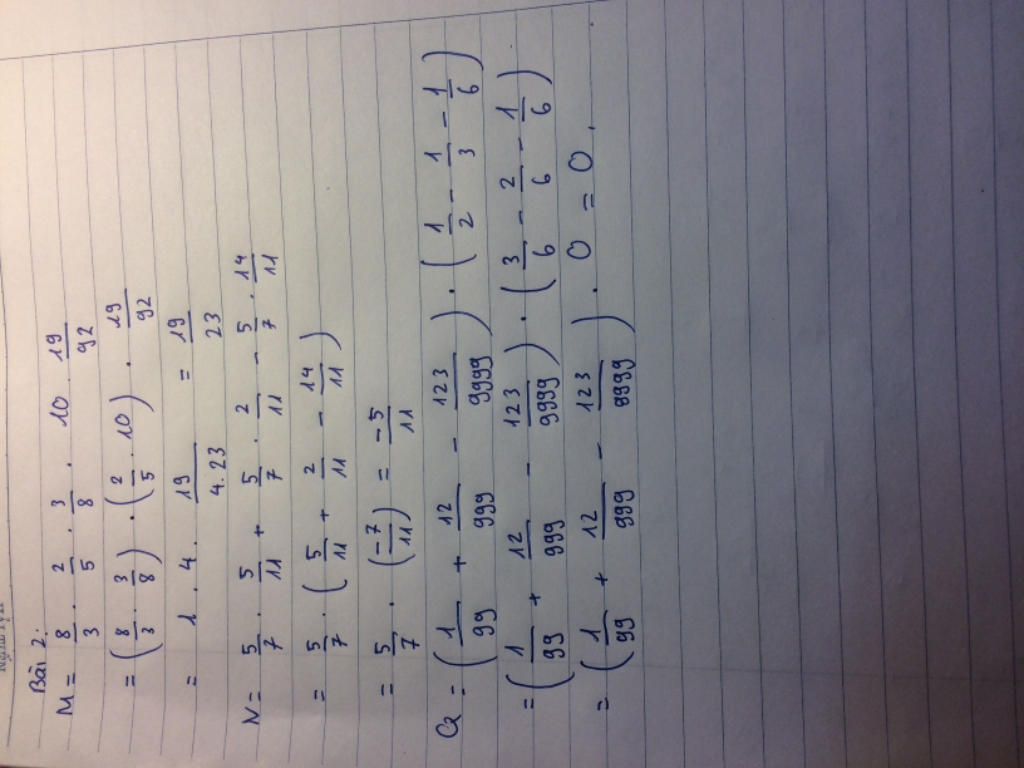 Bài 2:
M = 8/3 . 2/5 . 3/8 . 10 . 19/92
= (8/3 . 3/8) . (2/5 . 10) . 19/92
= 1 . 4 . 19/4.23 = 19/23
N = 5/7 . 5/11 + 5/7 . 2/11 - 5/7 . 14/11
= 5/7 . (5/11 + 2/11 - 14/11)
= 5/7 . (-7/11) = -5/11
Q = (1/99 + 12/999 - 123/9999) . (1/2 - 1/3 - 1/6)
= (1/99 + 12/999 - 123/9999) . (3/6 - 2/6 - 1/6)
= (1/99 + 12/999 - 123/9999) . 0 = 0.